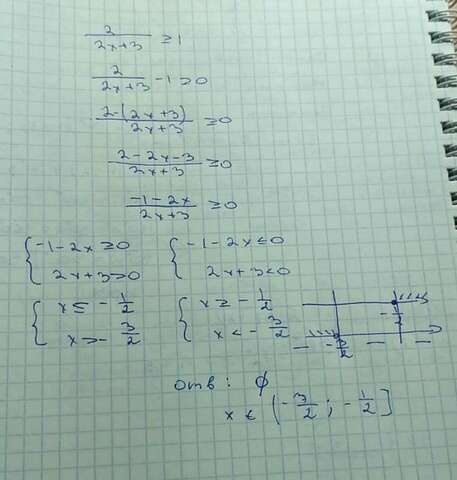 2/(2x+3) ≥ 1
2/(2x+3) - 1 ≥ 0
(2-(2x+3))/(2x+3) ≥ 0
(2-2x-3)/(2x+3) ≥ 0
(-1-2x)/(2x+3) ≥ 0
{ -1-2x ≥ 0 { -1-2x ≤ 0
2x+3>0 2x+3<0
{ x ≤ -1/2 { x ≥ -1/2
x > -3/2 x < -3/2
-1/2
-3/2
отв: ∅
x ∈ (-3/2; -1/2]